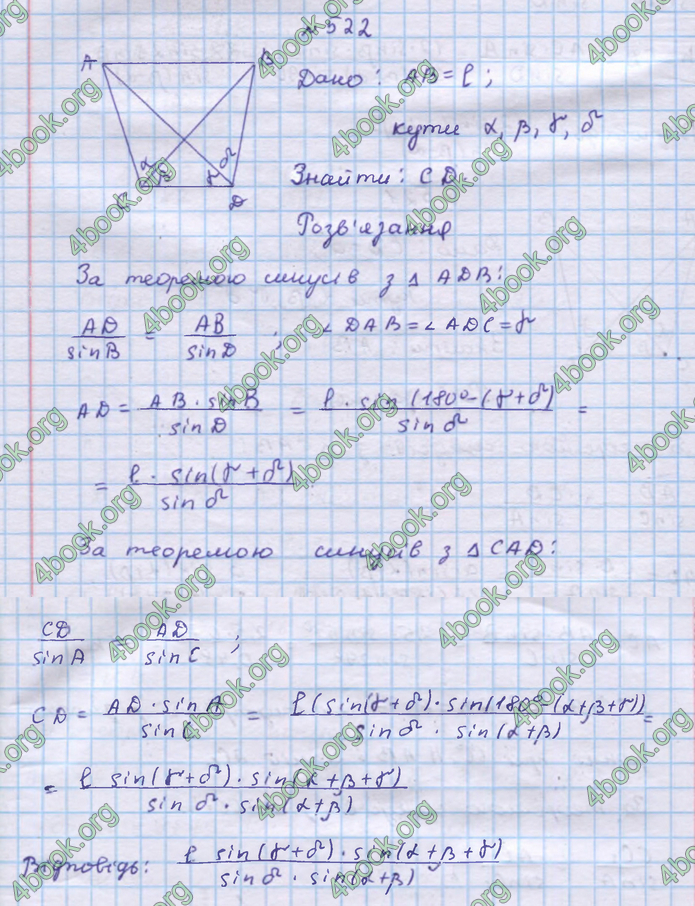 №522
A B
Дано: AB = l;
кути α, β, γ, δ
α β γ δ
Знайти: CD.
C D
Розв'язання
За теоремою синусів з △ ADB:
AD/sin B = AB/sin D ; ∠ DAB = ∠ ADC = γ
AD = AB · sin B/sin D = l · sin (180° - (γ + δ)/sin δ =
= l · sin(γ + δ)/sin δ
За теоремою синусів з △ CAD:
CD/sin A = AD/sin C ;
CD = AD · sin A/sin C = l (sin(γ + δ) · sin(180° - (α + β + γ))/sin δ · sin (α + β) =
= l sin(γ + δ) · sin(α + β + γ)/sin δ · sin(α + β)
Відповідь: l sin(γ + δ) · sin(α + β + γ)/sin δ · sin(α + β)
4book.org